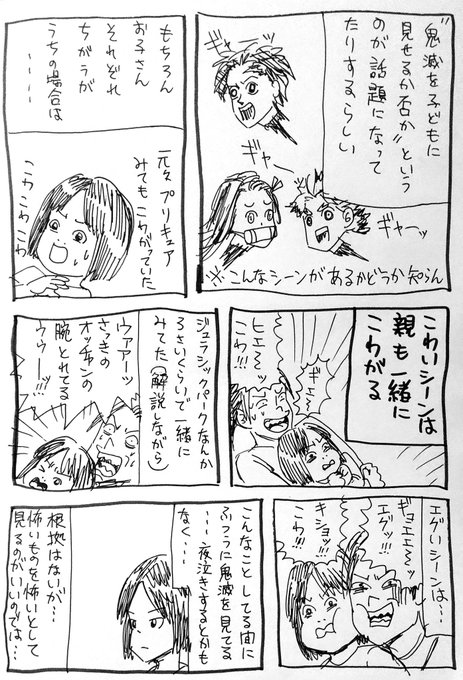 “鬼滅を子どもに
見せるか否か”という
のが話題になって
たりするらしい
ギャーッ
ギャー
ギャーッ
※こんなシーンがあるかどうか知らん
もちろん
お子さん
それぞれ
ちがうが
うちの場合は
・・・・
元々プリキュア
みてもこわがっていた
こわ
こわ
こわ
こわいシーンは
親も一緒に
こわがる
ギェー
ヒエ〜ッ
こわ!!
ジュラシックパークなんか
3さいくらいで一緒に
みてた(解説しながら)
ウァアーッ
さっきの
オッチャンの
腕とれてる
ウゥー!!
エグいシーンは…
ギョエエ〜ッ
エグッ!!
キショッ!!
こわ!!
こんなことしてる間に
ふつうに鬼滅を見てる
…夜泣きするとかも
なく…
根拠はないが…
怖いものを怖いとして
見るのがいいのでは…